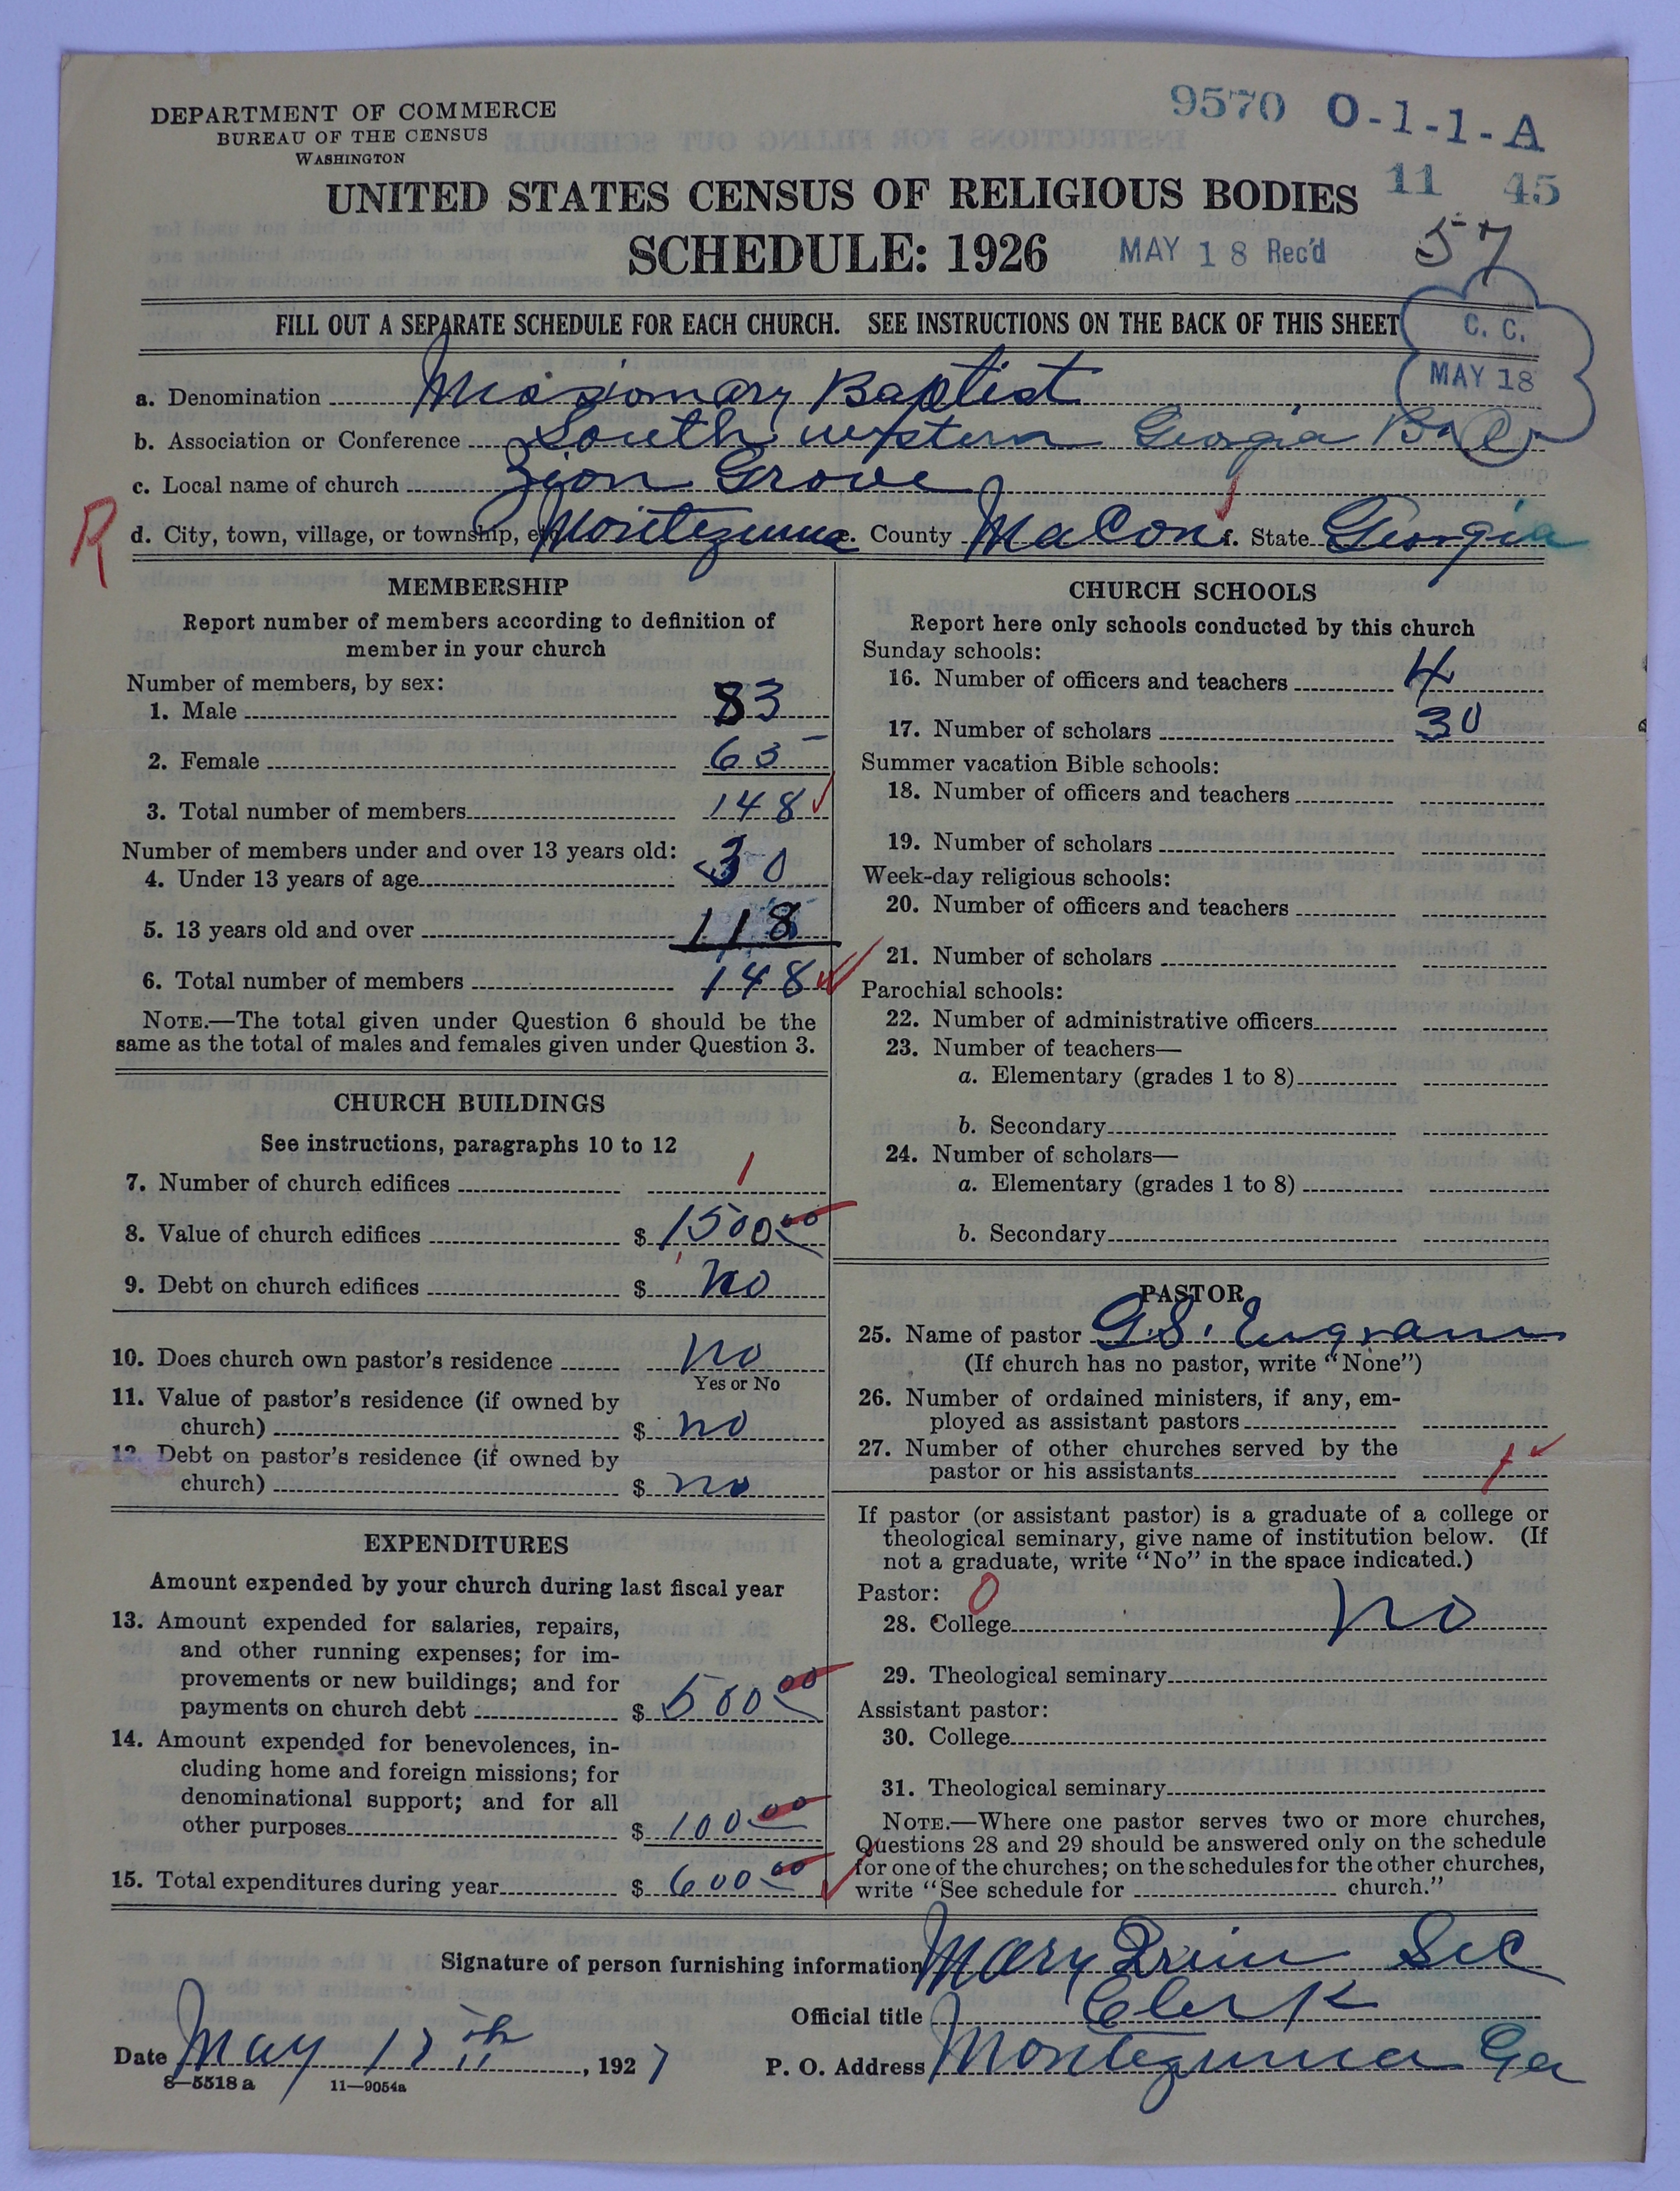 DEPARTMENT OF COMMERCE
BUREAU OF THE CENSUS
WASHINGTON
9570 O-1-1-A
11 45
UNITED STATES CENSUS OF RELIGIOUS BODIES
SCHEDULE: 1926
MAY 18 Rec'd
57
FILL OUT A SEPARATE SCHEDULE FOR EACH CHURCH. SEE INSTRUCTIONS ON THE BACK OF THIS SHEET
C. C.
MAY 18
a. Denomination Missionary Baptist
b. Association or Conference South western Georgia
c. Local name of church Zion Grove
R
d. City, town, village, or township, etc. Montezuma e. County Macon f. State Georgia
MEMBERSHIP
Report number of members according to definition of
member in your church
Number of members, by sex:
1. Male 83
2. Female 65
3. Total number of members 148
Number of members under and over 13 years old:
4. Under 13 years of age 30
5. 13 years old and over 118
6. Total number of members 148
NOTE.—The total given under Question 6 should be the
same as the total of males and females given under Question 3.
CHURCH BUILDINGS
See instructions, paragraphs 10 to 12
7. Number of church edifices 1
8. Value of church edifices $ 1500 00
9. Debt on church edifices $ no
10. Does church own pastor's residence no
Yes or No
11. Value of pastor's residence (if owned by
church) $ no
12. Debt on pastor's residence (if owned by
church) $ no
EXPENDITURES
Amount expended by your church during last fiscal year
13. Amount expended for salaries, repairs,
and other running expenses; for im-
provements or new buildings; and for
payments on church debt $ 500 00
14. Amount expended for benevolences, in-
cluding home and foreign missions; for
denominational support; and for all
other purposes $ 100 00
15. Total expenditures during year $ 600 00
CHURCH SCHOOLS
Report here only schools conducted by this church
Sunday schools:
16. Number of officers and teachers 4
17. Number of scholars 30
Summer vacation Bible schools:
18. Number of officers and teachers
19. Number of scholars
Week-day religious schools:
20. Number of officers and teachers
21. Number of scholars
Parochial schools:
22. Number of administrative officers
23. Number of teachers—
a. Elementary (grades 1 to 8)
b. Secondary
24. Number of scholars—
a. Elementary (grades 1 to 8)
b. Secondary
PASTOR
25. Name of pastor G.S. Engram
(If church has no pastor, write "None")
26. Number of ordained ministers, if any, em-
ployed as assistant pastors
27. Number of other churches served by the
pastor or his assistants 1
If pastor (or assistant pastor) is a graduate of a college or
theological seminary, give name of institution below. (If
not a graduate, write "No" in the space indicated.)
Pastor: 0
28. College no
29. Theological seminary
Assistant pastor:
30. College
31. Theological seminary
NOTE.—Where one pastor serves two or more churches,
Questions 28 and 29 should be answered only on the schedule
for one of the churches; on the schedules for the other churches,
write "See schedule for church."
Signature of person furnishing information Mary Sec
Official title Clerk
Date May th, 1927 P. O. Address Montezuma Ga
8—5518 a 11—9054a